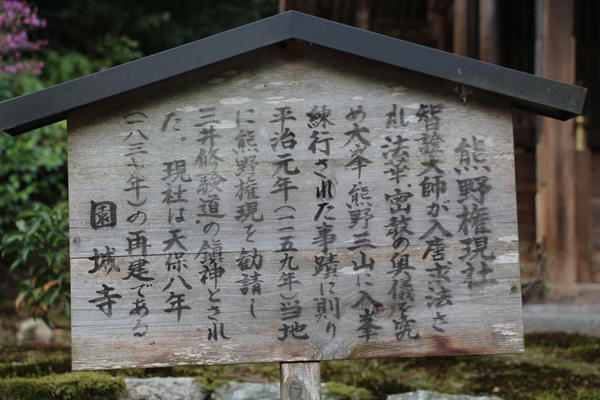 熊野権現社
智證大師が入唐求法さ
れ法華、密教の奥儀を究
め大峯、熊野三山に入峯
練行された事蹟に則り
平治元年(一一五九年)当地
に熊野権現を勧請し
三井修験道の鎮神とされ
た。現社は天保八年
(一八三七年)の再建である。
園城寺